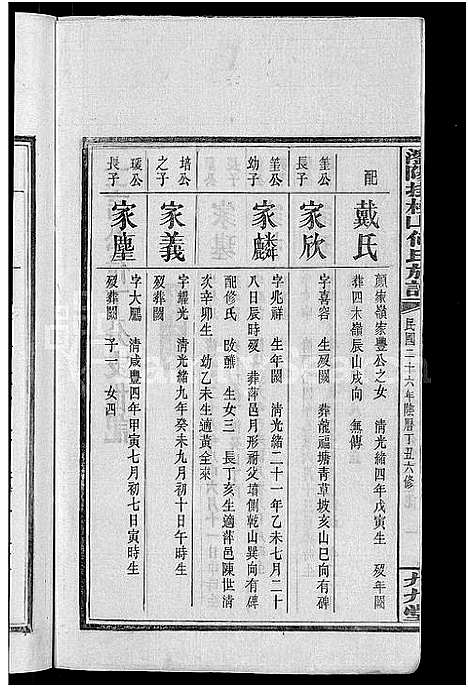 瀏陽掛榜山何氏族譜
民國二十六年陸曆丁丑六修
九九堂
配
戴氏
顏家嶺家豐公之女 清光緒四年戊寅生 歿年闕
葬四木嶺辰山戌向 無傳
笙公長子
家欣
字喜容 生歿闕 葬龍福塘青草坡亥山巳向有碑
笙公幼子
家麟
字兆祥 生年闕 清光緒二十一年乙未七月二十
八日辰時歿 葬萍邑月形祔父墳側乾山巽向有碑
配修氏 改醮 生女三 長丁亥生適萍邑陳世清
次辛卯生 幼乙未生適黃全來
培公之子
家義
字耀光 清光緒九年癸未九月初十日午時生
歿葬闕
瑗公長子
家塵
字大鵬 清咸豐四年甲寅七月初七日寅時生
歿葬闕 子一 女四